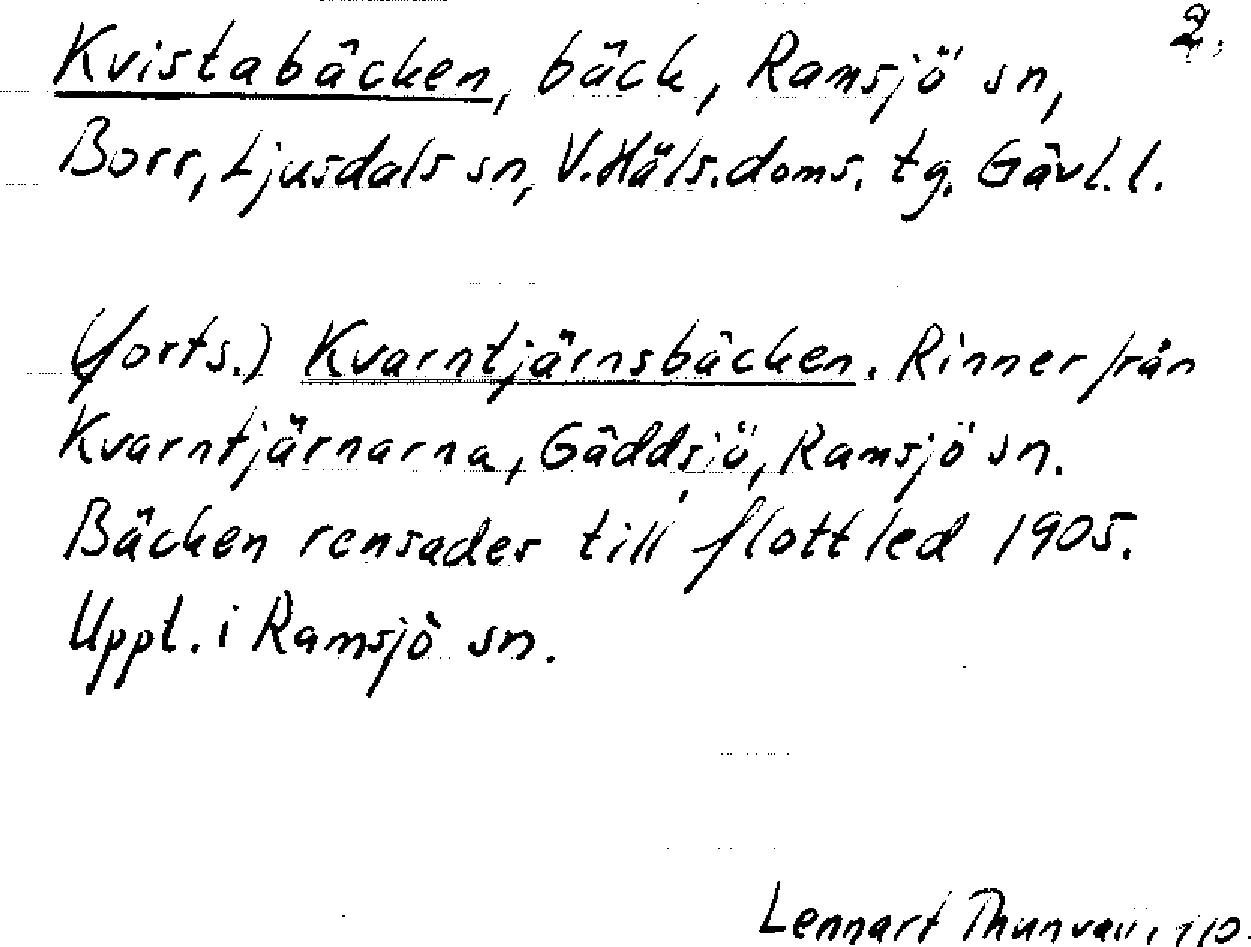 2.
Kvistabäcken, bäck, Ramsjö sn,
Borr, Ljusdals sn, V. Häls. doms. tg. Gävl. l.
(forts.) Kvarntjärnsbäcken. Rinner från
Kvarntjärnarna, Gäddsjö, Ramsjö sn.
Bäcken rensades till flottled 1905.
Uppl. i Ramsjö sn.
Lennart